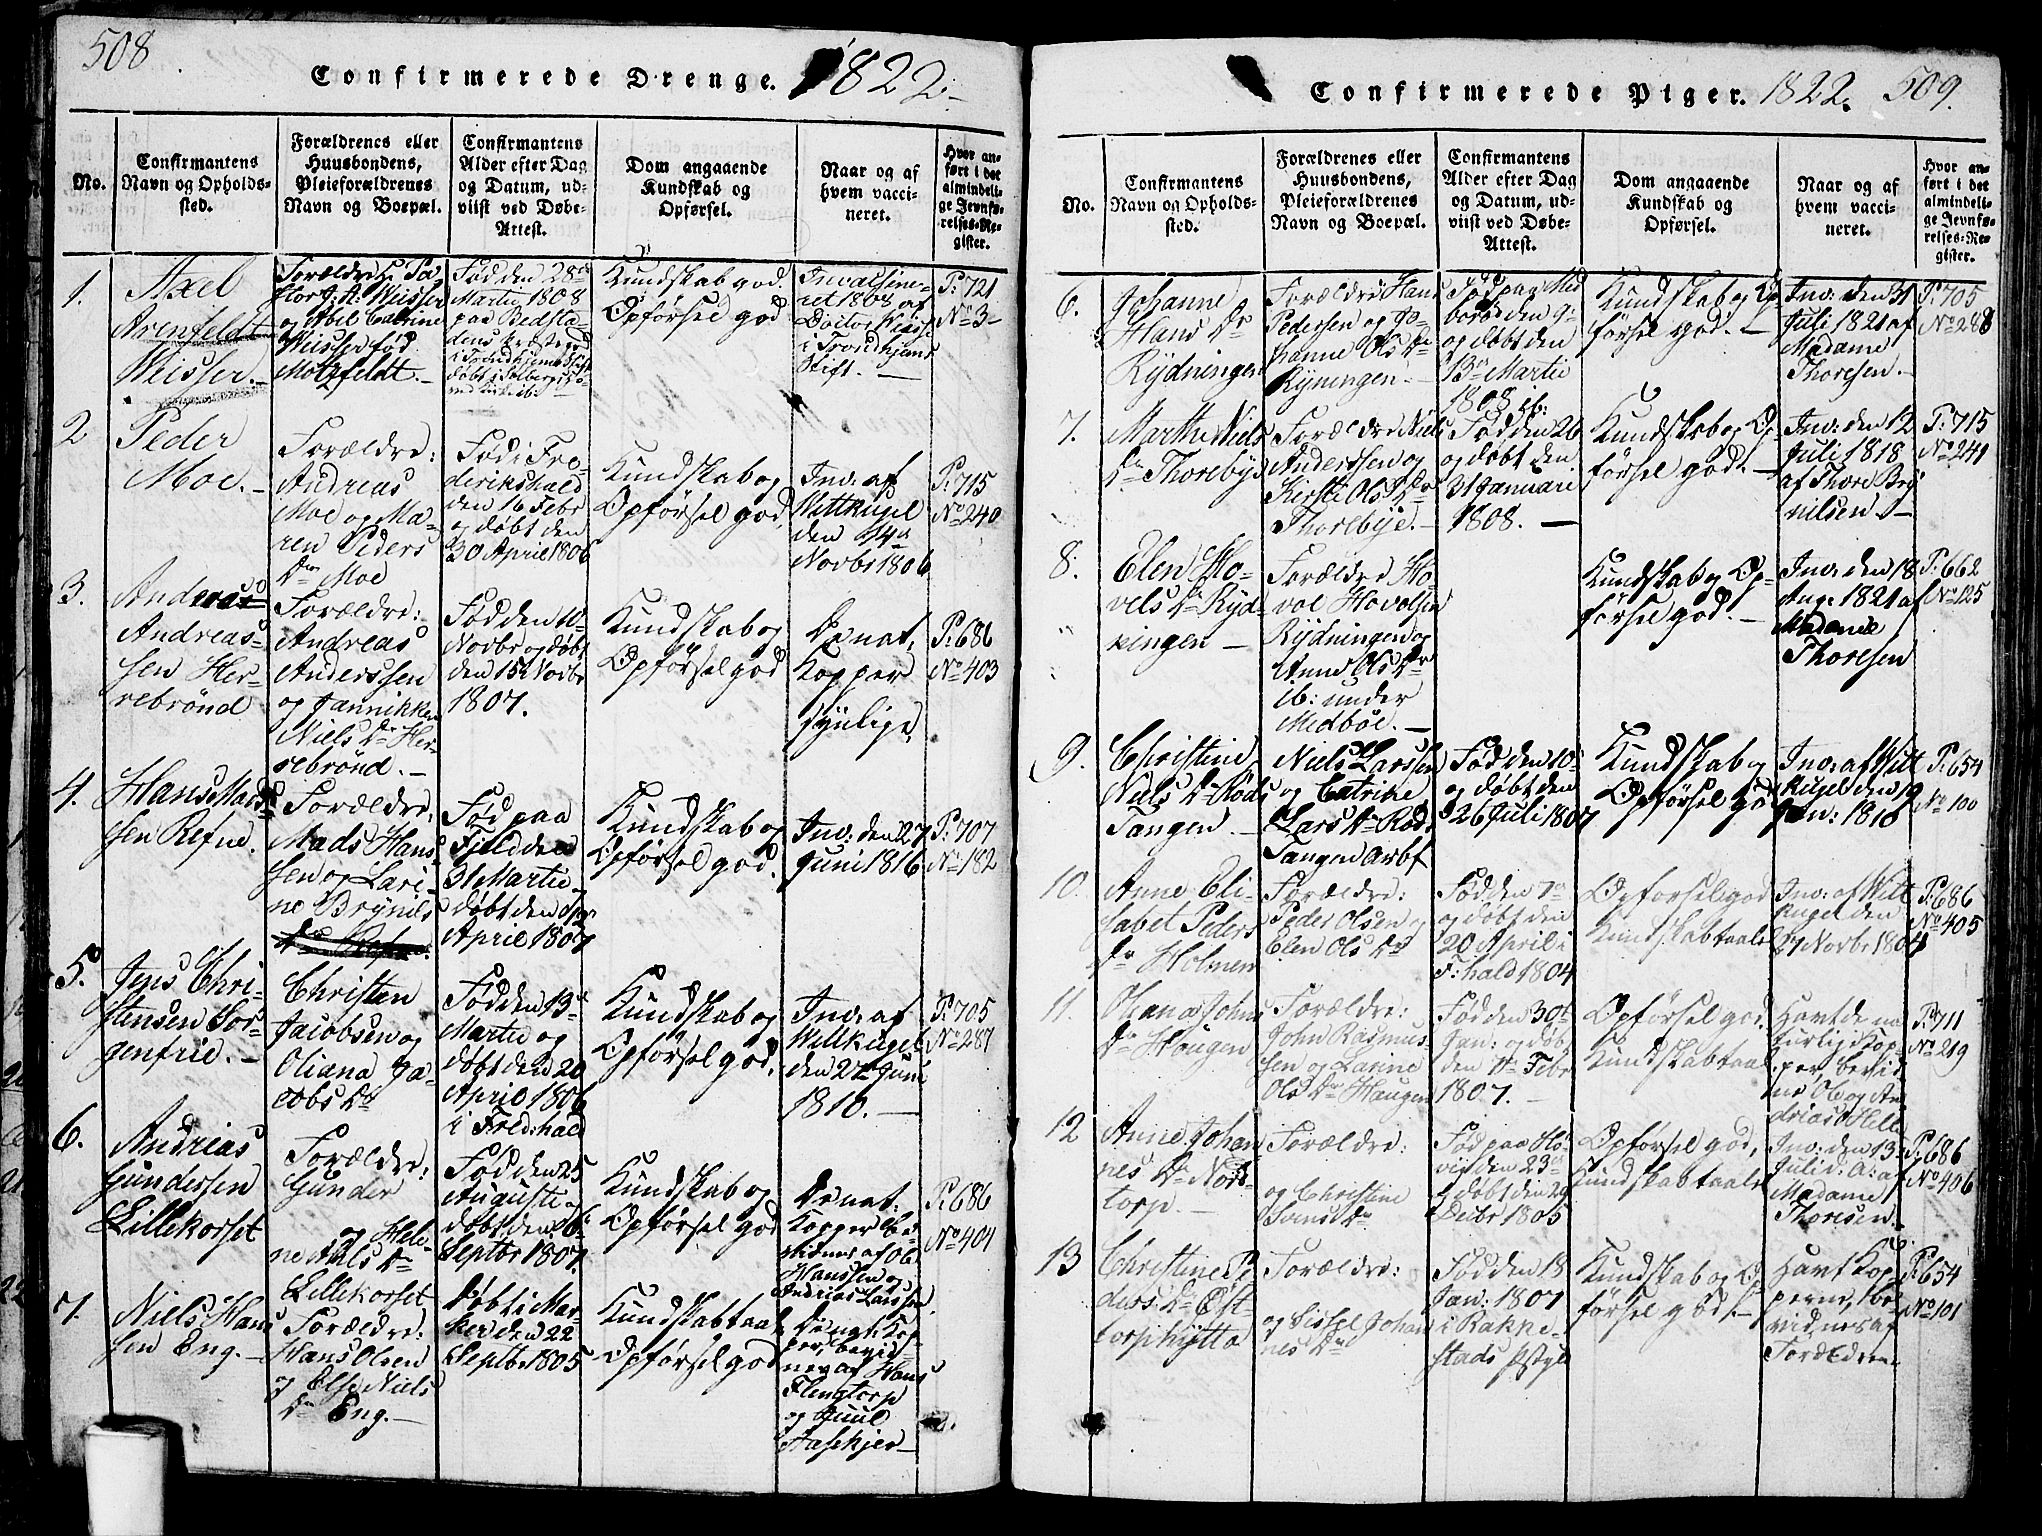 508
Confirmerede Drenge. 1822.
No.
Confirmantens
Navn og Opholds-
sted.
Forældrenes eller
Huusbondens,
Pleieforældrenes
Navn og Boepæl.
Confirmantens
Alder efter Dag
og Datum, ud-
viist ved Døbe-
Attest.
Dom angaaende
Kundskab og
Opførsel.
Naar og af
hvem vacci-
neret.
Hvor an-
ført i det
almindeli-
ge Jevnfø-
relses-Re-
gister.
1.
Axel
Arenfeldt
Weisser.
Forældre
Weisser
og Abel Catrine
Weisser fød
Motzfeldt.
Fød den 28de
Martii 1808
paa
døbt i
Kundskab god.
Opførsel god
ret 1808 af
Doctor
i Trondhjems
Stift.
P: 721
No 3
2
Peder
Moe.
Forældre:
Andreas
Moe og Ma-
ren Peders
Dr Moe
Fød i Fre-
derikshald
den 16 Febr
og døbt den
30 April 1806
Kundskab og
Opførsel god,
Inv: af
Wittkugel
den 14d
Novbr 1806
P: 715
No 240
3.
Andreas
Andreas-
sen Her-
rebrønd
Forældre:
Andreas
Anderssen
og Jannikken
Niels Dr Her-
rebrønd.
Fød den 10
Novbr og døbt
den 15de Novbr
1807.
Kundskab og
Opførsel god
De nat.
Kopper
synlige.
P: 686
No 403
4.
Hans Mad-
sen Refne.
Forældre:
Mads Hans-
sen og Lari-
ne Brynils
Fød paa
Field den
31 Martii
døbt den
April 1807
Kundskab og
Opførsel god.
Inv: den 27
Juni 1816
P: 707
No 182
5.
Jens Chri-
stensen Sor-
genfrie.
Christen
Jacobsen og
Oliana Ja-
cobs Dr
Fød den 13de
Martii og
døbt den 20
April 1806
i Fredhald
Kundskab og
Opførsel god.
Inv: af
Wittkugel
den 22 Juni
1810.
P: 705
No 287
6.
Andreas
Gundersen
Lillekorset
Forældre:
Gunder
og Hele-
ne Niels Dr
Lillekorset
Fød den 25
Augusti
døbt den 6te
Septbr 1807
Kundskab og
Opførsel god
De nat:
Kopper be-
vidnes af Ole
Hanssen og
Andreas Larssen
P: 686
No 404
7.
Niels Hans
sen Eng.
Forældre:
Hans Olsen
og Else Niels
Dr Eng.
Døbt i Mar-
ker den 22
Septbr 1805
Kundskab taal
Opførsel god
per, bevid-
nes af Hans
Flengtorp
og Juul
Aaskjer
Confirmerede Piger. 1822. 509.
No.
Confirmantens
Navn og Opholds-
sted.
Forældrenes eller
Huusbondens,
Pleieforældrenes
Navn og Boepæl.
Confirmantens
Alder efter Dag
og Datum, ud-
viist ved Døbe-
Attest.
Dom angaaende
Kundskab og
Opførsel.
Naar og af
hvem vacci-
neret.
Hvor an-
ført i det
almindeli-
ge Jevnfø-
relses-Re-
gister.
6.
Johanne
Hans Dr
Rydningen
Forældre Hans
Pedersen og Jo-
hanne Ols Dr
Ryningen.
Fød paa Med
boe den 9
og døbt den
13de Martii
1808
Kundskab og Op-
førsel god.
Inv: den 31
Juli 1821 af
Madame
Thoresen.
P: 705
No 288
7.
Marthe Niels
Dr Thorebye
Forældre Niels
Anderssen og
Kirsti Ols Dr
Thorebye.
Fød den 26
og døbt den
31 Januari
1808.
Kundskab og Op-
førsel god.
Inv: den 12
Juli 1818
af Thore Bry
nilsen
P: 715
No 241
8.
Elen Ho-
vels Dr Ryd-
ningen
Forældre Ho
vel Hovelsen
Rydningen og
Anne Ols Dr
ib: under
Medbøe.
Kundskab og Op-
førsel god.
Inv: den 18
Aug: 1821 af
Madame
Thoresen
P: 662
No 125
9.
Christine
Niels Dr Røds
Tangen
Niels Larssen
og Catrine
Lars Dr Røds
Tangen
Fød den 10
og døbt den
26 Juli 1807
Kundskab og
Opførsel god
Inv: af Witt
kugel den 19
Jan: 1810
P: 654
No 100
10.
Anne Eli-
sabet Peders
Dr Holmen
Forældre:
Peder Olsen og
Elen Ols Dr
Fød den 7d
og døbt den
20 April i
F:hald 1804
Opførsel god
Kundskab taal
Inv: af Witt
kugel den
27 Novbr 1804
P: 686
No 405
11.
Oliana Johns
Dr Haugen
Forældre:
John Rasmus-
sen og Larine
Ols Dr Haugen
Fød den 30te
Jan: og døbt
den Febr
1807.
Opførsel god.
Kundskab taal
Havt de na
turlige Kop-
per, bevid
nes Ole og An
dreas
P: 711
No 219
12
Anne Johan
nes Dr Nord-
torp.
Forældre:
og Christine
Svens Dr
Fød paa Hø
vig den 23de
døbt den 29
Decbr 1805
Opførsel god,
Kundskab taal
Inv: den 13
Juli d: A: af
Madame
Thoresen
P: 686
No 406
13
Christine Pe
ders Dr Øst-
torphytta
Forældre:
og Sissel Johan
nes Dr
Fød den 18
Jan: 1807
i Rakke-
stads
Kundskab og Op
førsel god.
Havt Kop
perne, be
vidnes af
Forældren
P: 654
No 101